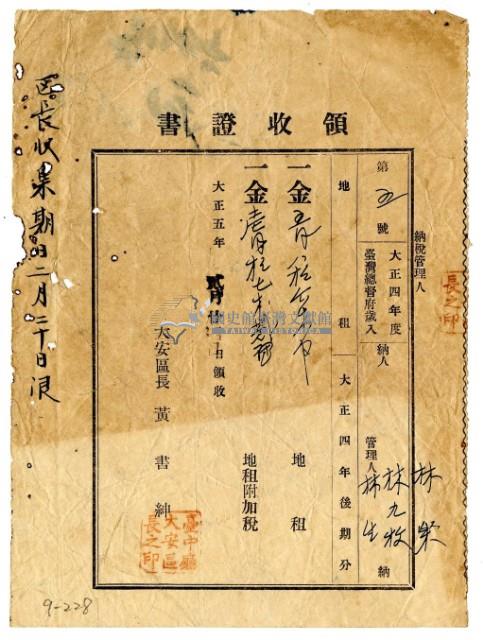 領收證書
納稅管理人
第五號
大正四年度
臺灣總督府歲入
納人
管理人
林
林九牧
林生
納
地租
大正四年後期分
一金
地租
一金
地租附加稅
大正五年
日領收
大安區長 黃書紳
臺中廳
大安區
長之印
長之印
區長收集期日二月二十日限
國史館臺灣文獻館
9-228